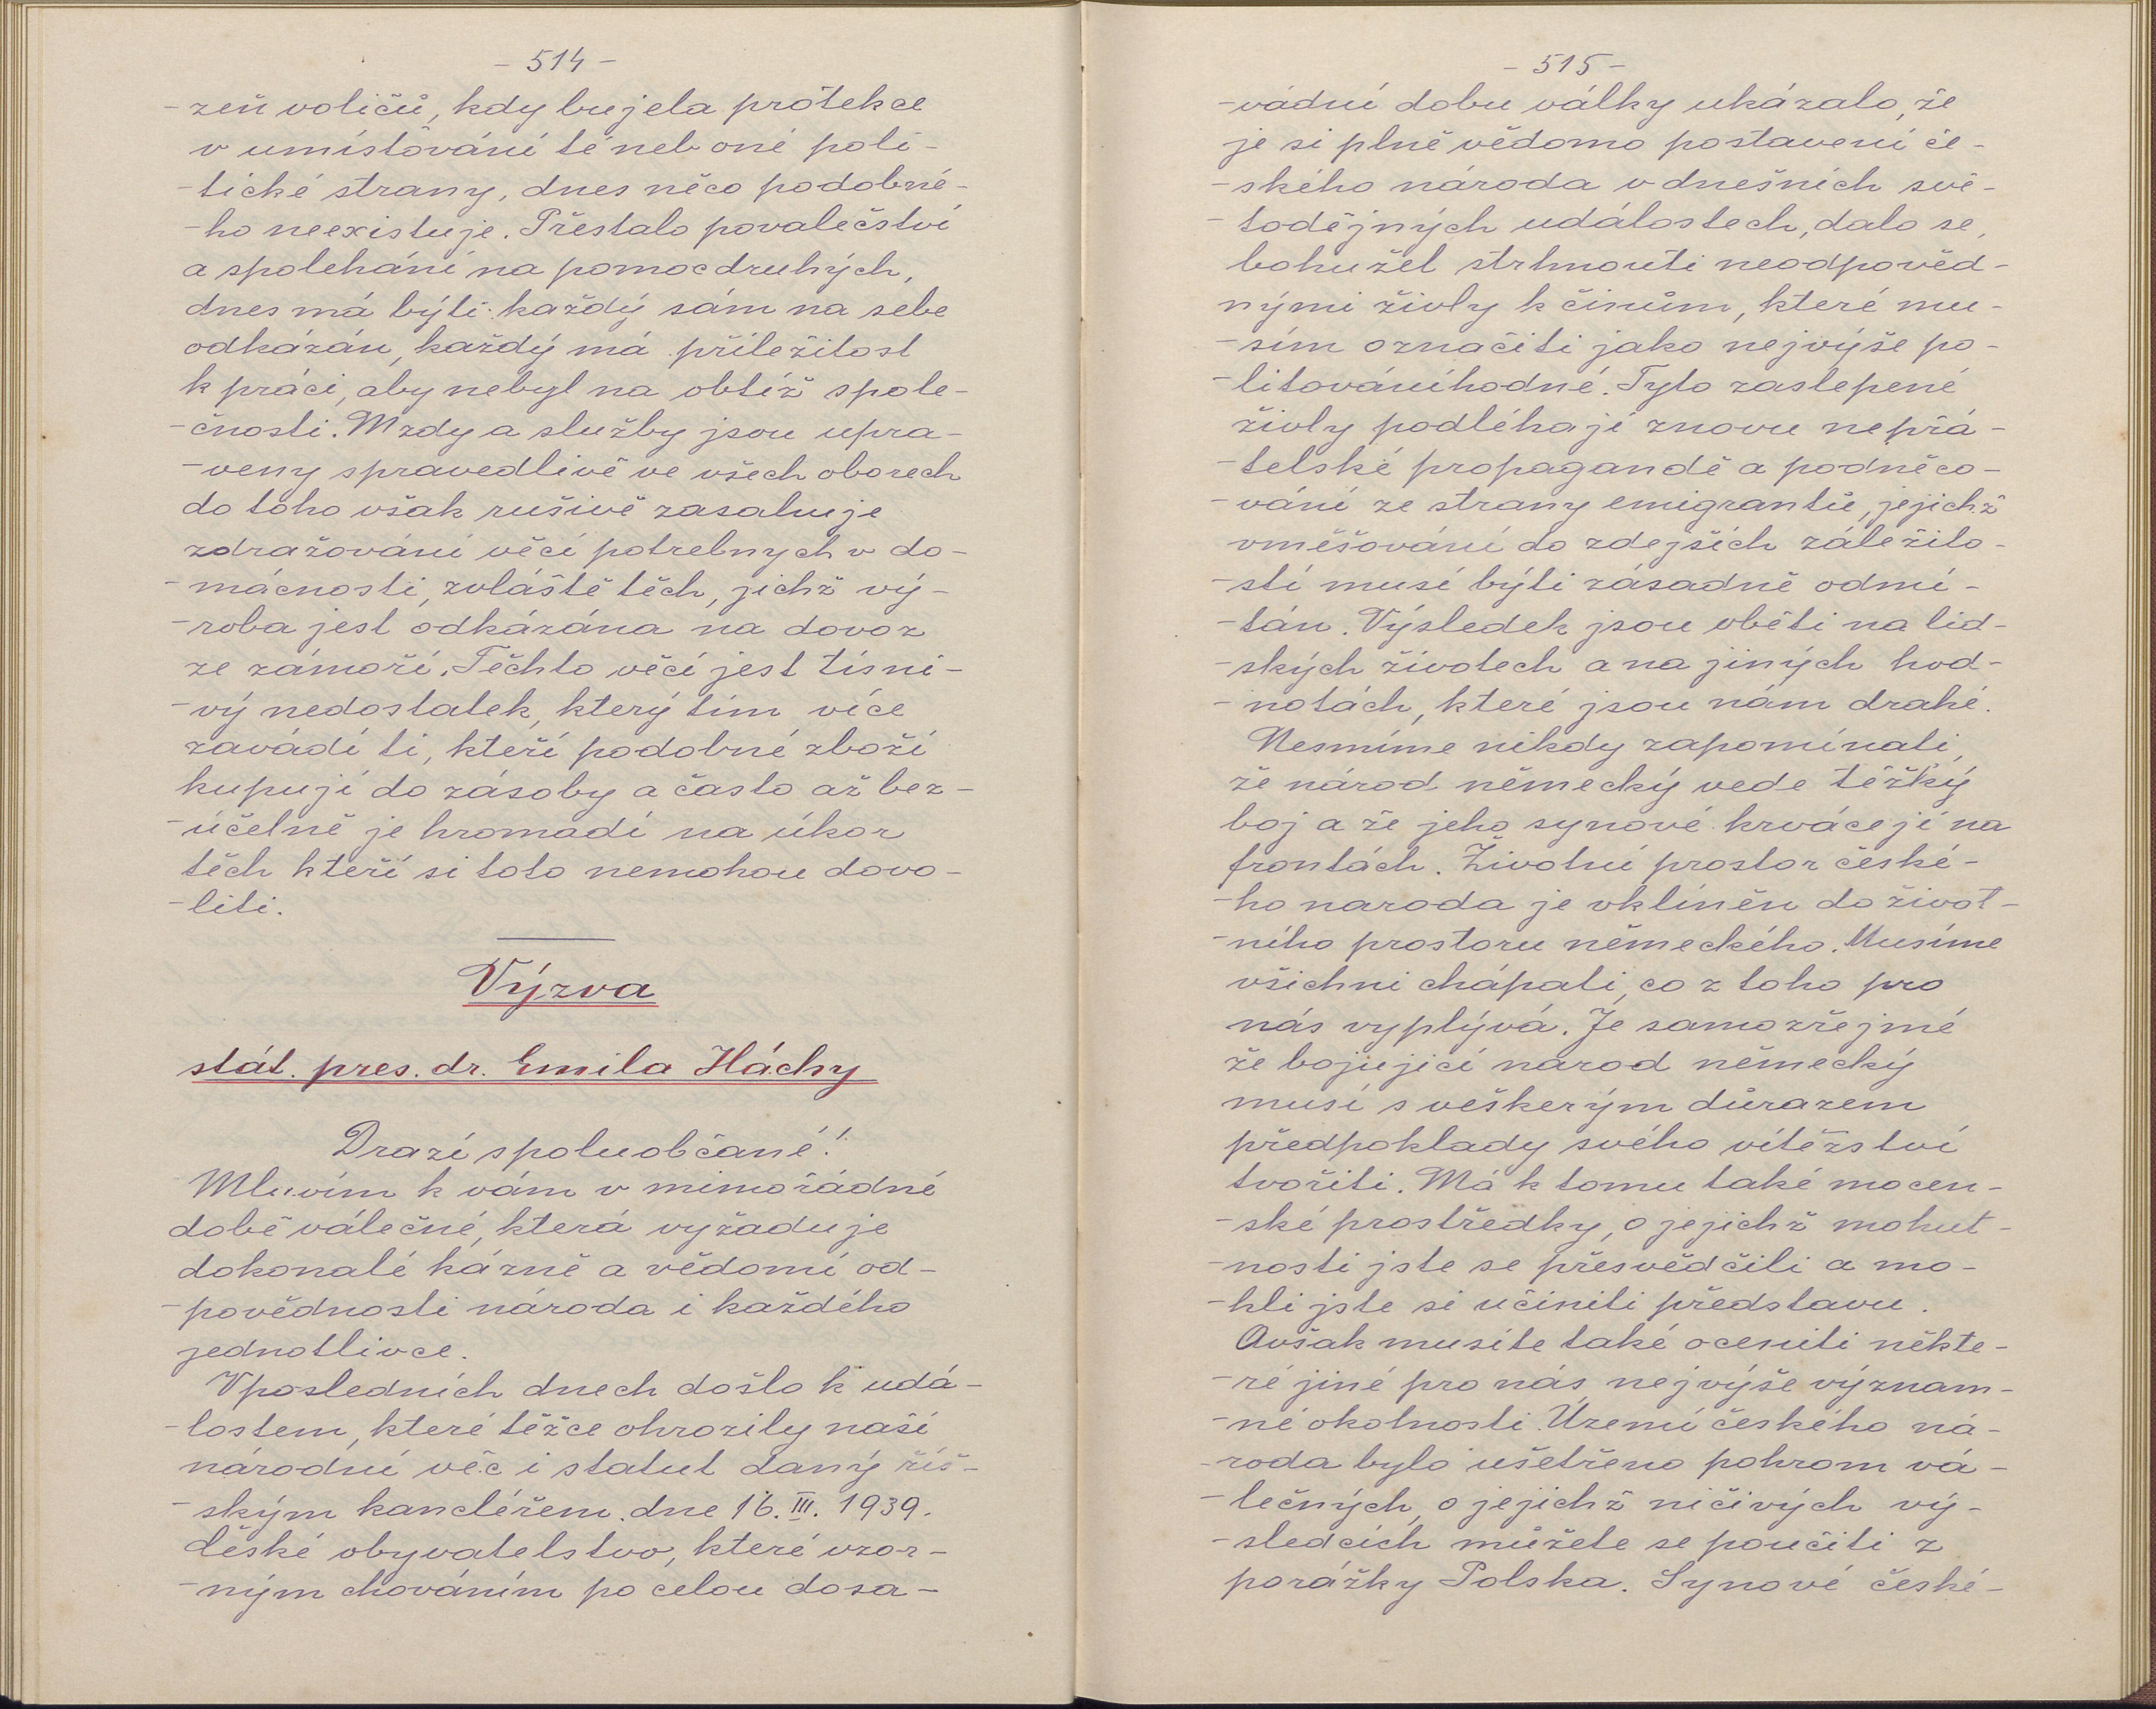 - 514 -
-zeň voličů, kdy bujela protekce
v umísťování té neb oné poli-
-tické strany, dnes něco podobné-
-ho neexistuje. Přestalo povalečství
a spoléhání na pomoc druhých,
dnes má býti každý sám na sebe
odkázán, každý má příležitost
k práci, aby nebyl na obtíž spole-
-čnosti. Mzdy a služby jsou upra-
-veny spravedlivě ve všech oborech
do toho však rušivě zasahuje
zdražování věcí potrebnych v do-
-mácnosti, zvláště těch, jichž vý-
-roba jest odkázána na dovoz
ze zámoří. Těchto věcí jest tísni-
-vý nedostatek, který tím více
zavádí ti, kteří podobné zboží
kupují do zásoby a často až bez-
-účelně je hromadí na úkor
těch kteří si toto nemohou dovo-
-liti.
Výzva
stát. pres. dr. Emila Háchy
Drazí spoluobčané!
Mluvím k vám v mimořádné
době válečné, která vyžaduje
dokonalé kázně a vědomí od-
-povědnosti národa i každého
jednotlivce.
V posledních dnech došlo k udá-
-lostem, které těžce ohrozily naši
národní věc i statut daný říš-
-ským kancléřem dne 16. III. 1939.
České obyvatelstvo, které vzor-
-ným chováním po celou dosa-
- 515 -
-vádní dobu války ukázalo, že
je si plně vědomo postavení če-
-ského národa v dnešních svě-
-todějných událostech, dalo se,
bohužel strhnouti neodpověd-
nými živly k činům, které mu-
-sím označiti jako nejvýše po-
-litováníhodné. Tyto zaslepené
živly podléhají znovu nepřá-
-telské propagandě a podněco-
-vání ze strany emigrantů, jejichž
vměšování do zdejších záležito-
-stí musí býti zásadně odmí-
-tán. Výsledek jsou oběti na lid-
-ských životech a na jiných hod-
-notách, které jsou nám drahé.
Nesmíme nikdy zapomínati,
že národ německý vede těžký
boj a že jeho synové krvácejí na
frontách. Životní prostor české-
-ho naroda je vklíněn do život-
-ního prostoru německého. Musíme
všichni chápati, co z toho pro
nás vyplývá. Je samozřejmé
že bojující narod německý
musí s veškerým důrazem
předpoklady svého vítězství
tvořiti. Má k tomu také mocen-
-ské prostředky, o jejichž mohut-
-nosti jste se přesvědčili a mo-
-hli jste si učiniti představu.
Avšak musíte také oceniti někte-
-ré jiné pro nás nejvýše význam-
-né okolnosti. Území českého ná-
-roda bylo ušetřeno pohrom vá-
-lečných, o jejichž ničivých vý-
-sledcích můžete se poučiti z
porážky Polska. Synové české-